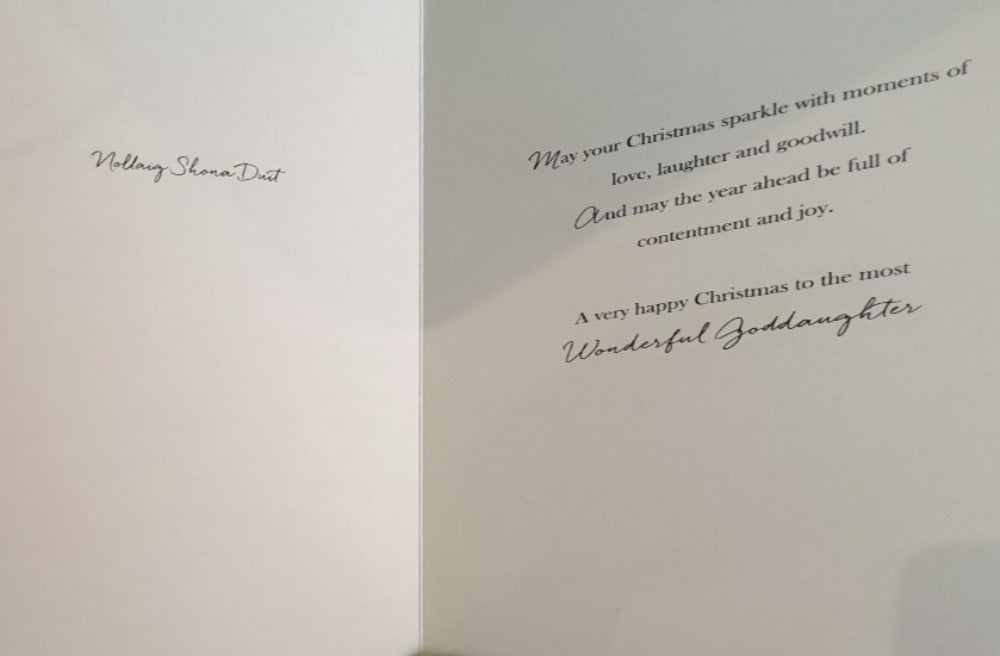 Nollaig Shona Duit
May your Christmas sparkle with moments of
love, laughter and goodwill.
And may the year ahead be full of
contentment and joy.
A very happy Christmas to the most
Wonderful Goddaughter